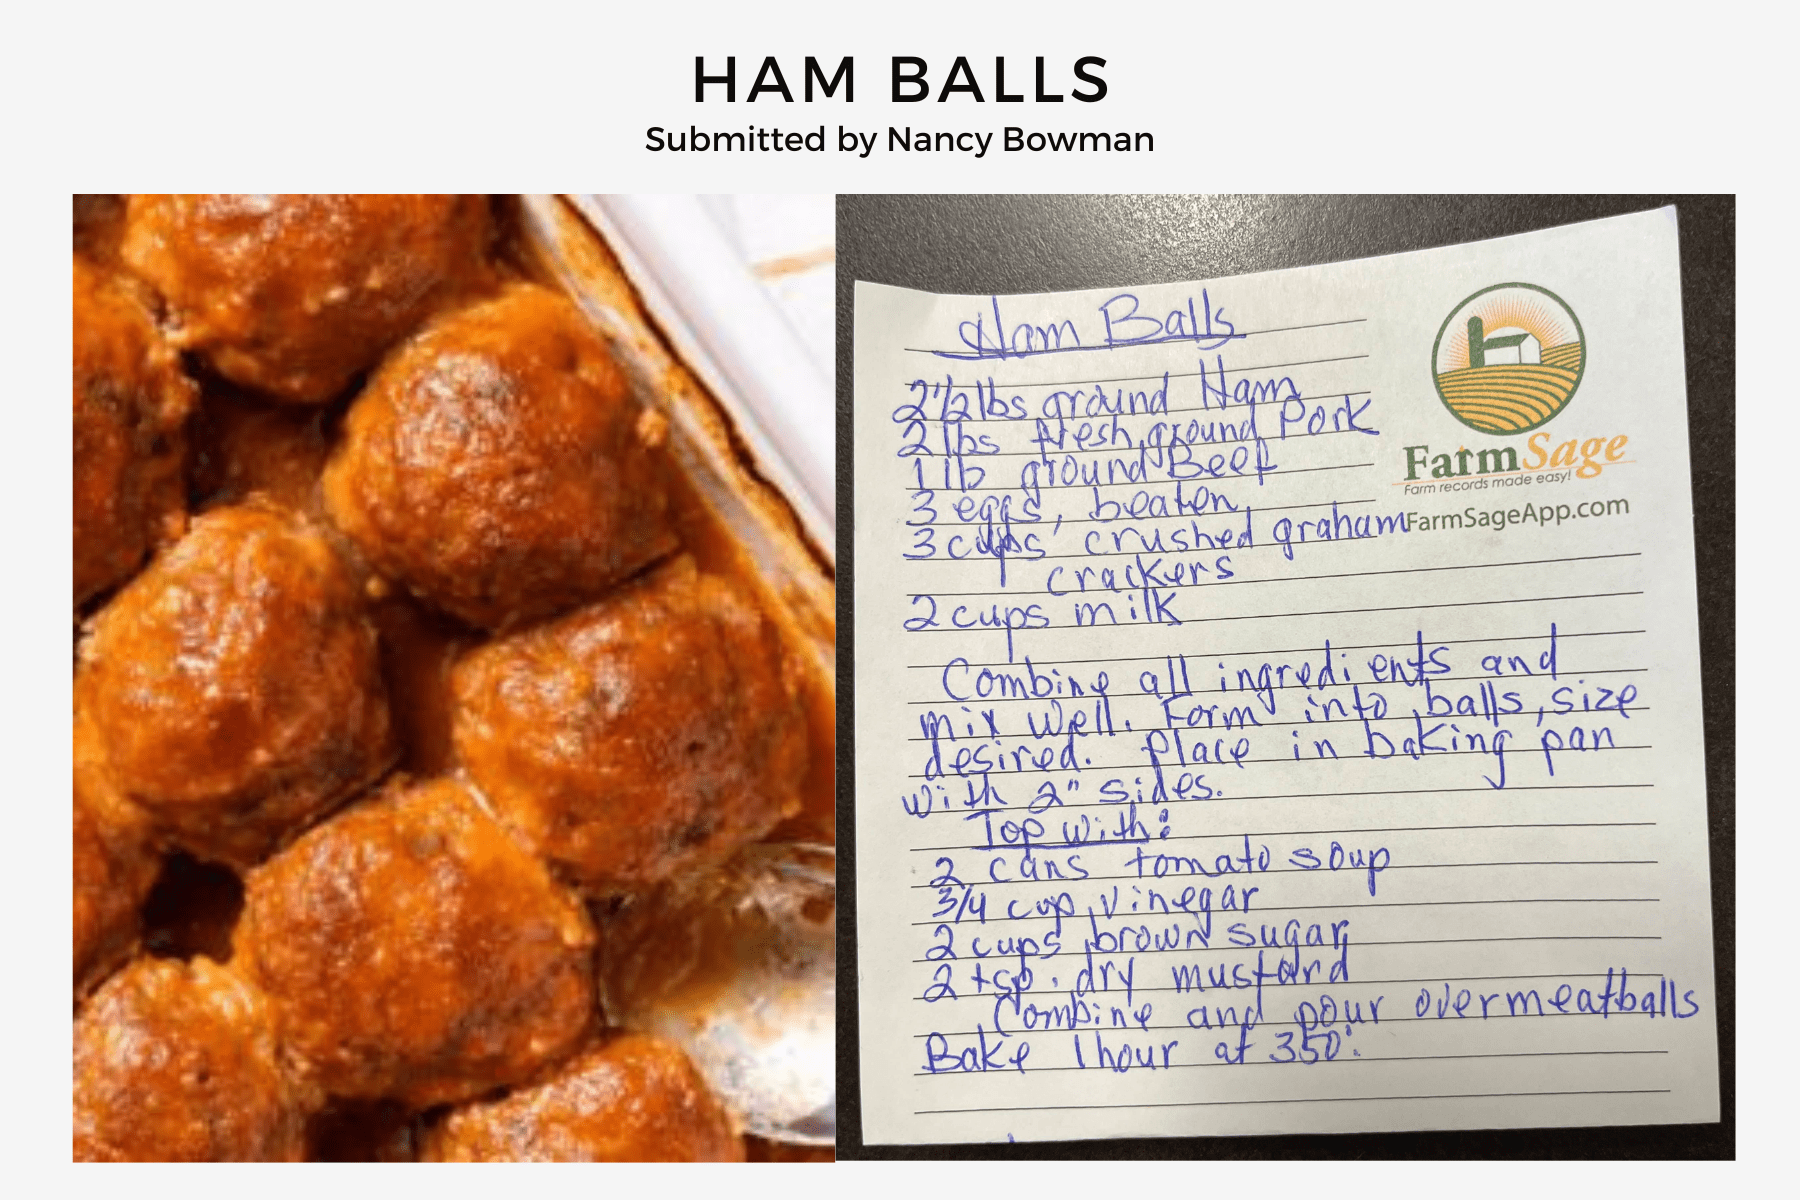 HAM BALLS
Submitted by Nancy Bowman
Ham Balls
2 1/2 lbs ground Ham
2 lbs fresh ground Pork
1 lb ground Beef
3 eggs, beaten
3 cups crushed graham
crackers
2 cups milk
Combine all ingredients and
mix well. Form into balls, size
desired. Place in baking pan
with 2" sides.
Top with:
2 cans tomato soup
3/4 cup vinegar
2 cups brown sugar
2 tsp. dry mustard
Combine and pour over meatballs
Bake 1 hour at 350°.
FarmSage
Farm records made easy!
FarmSageApp.com